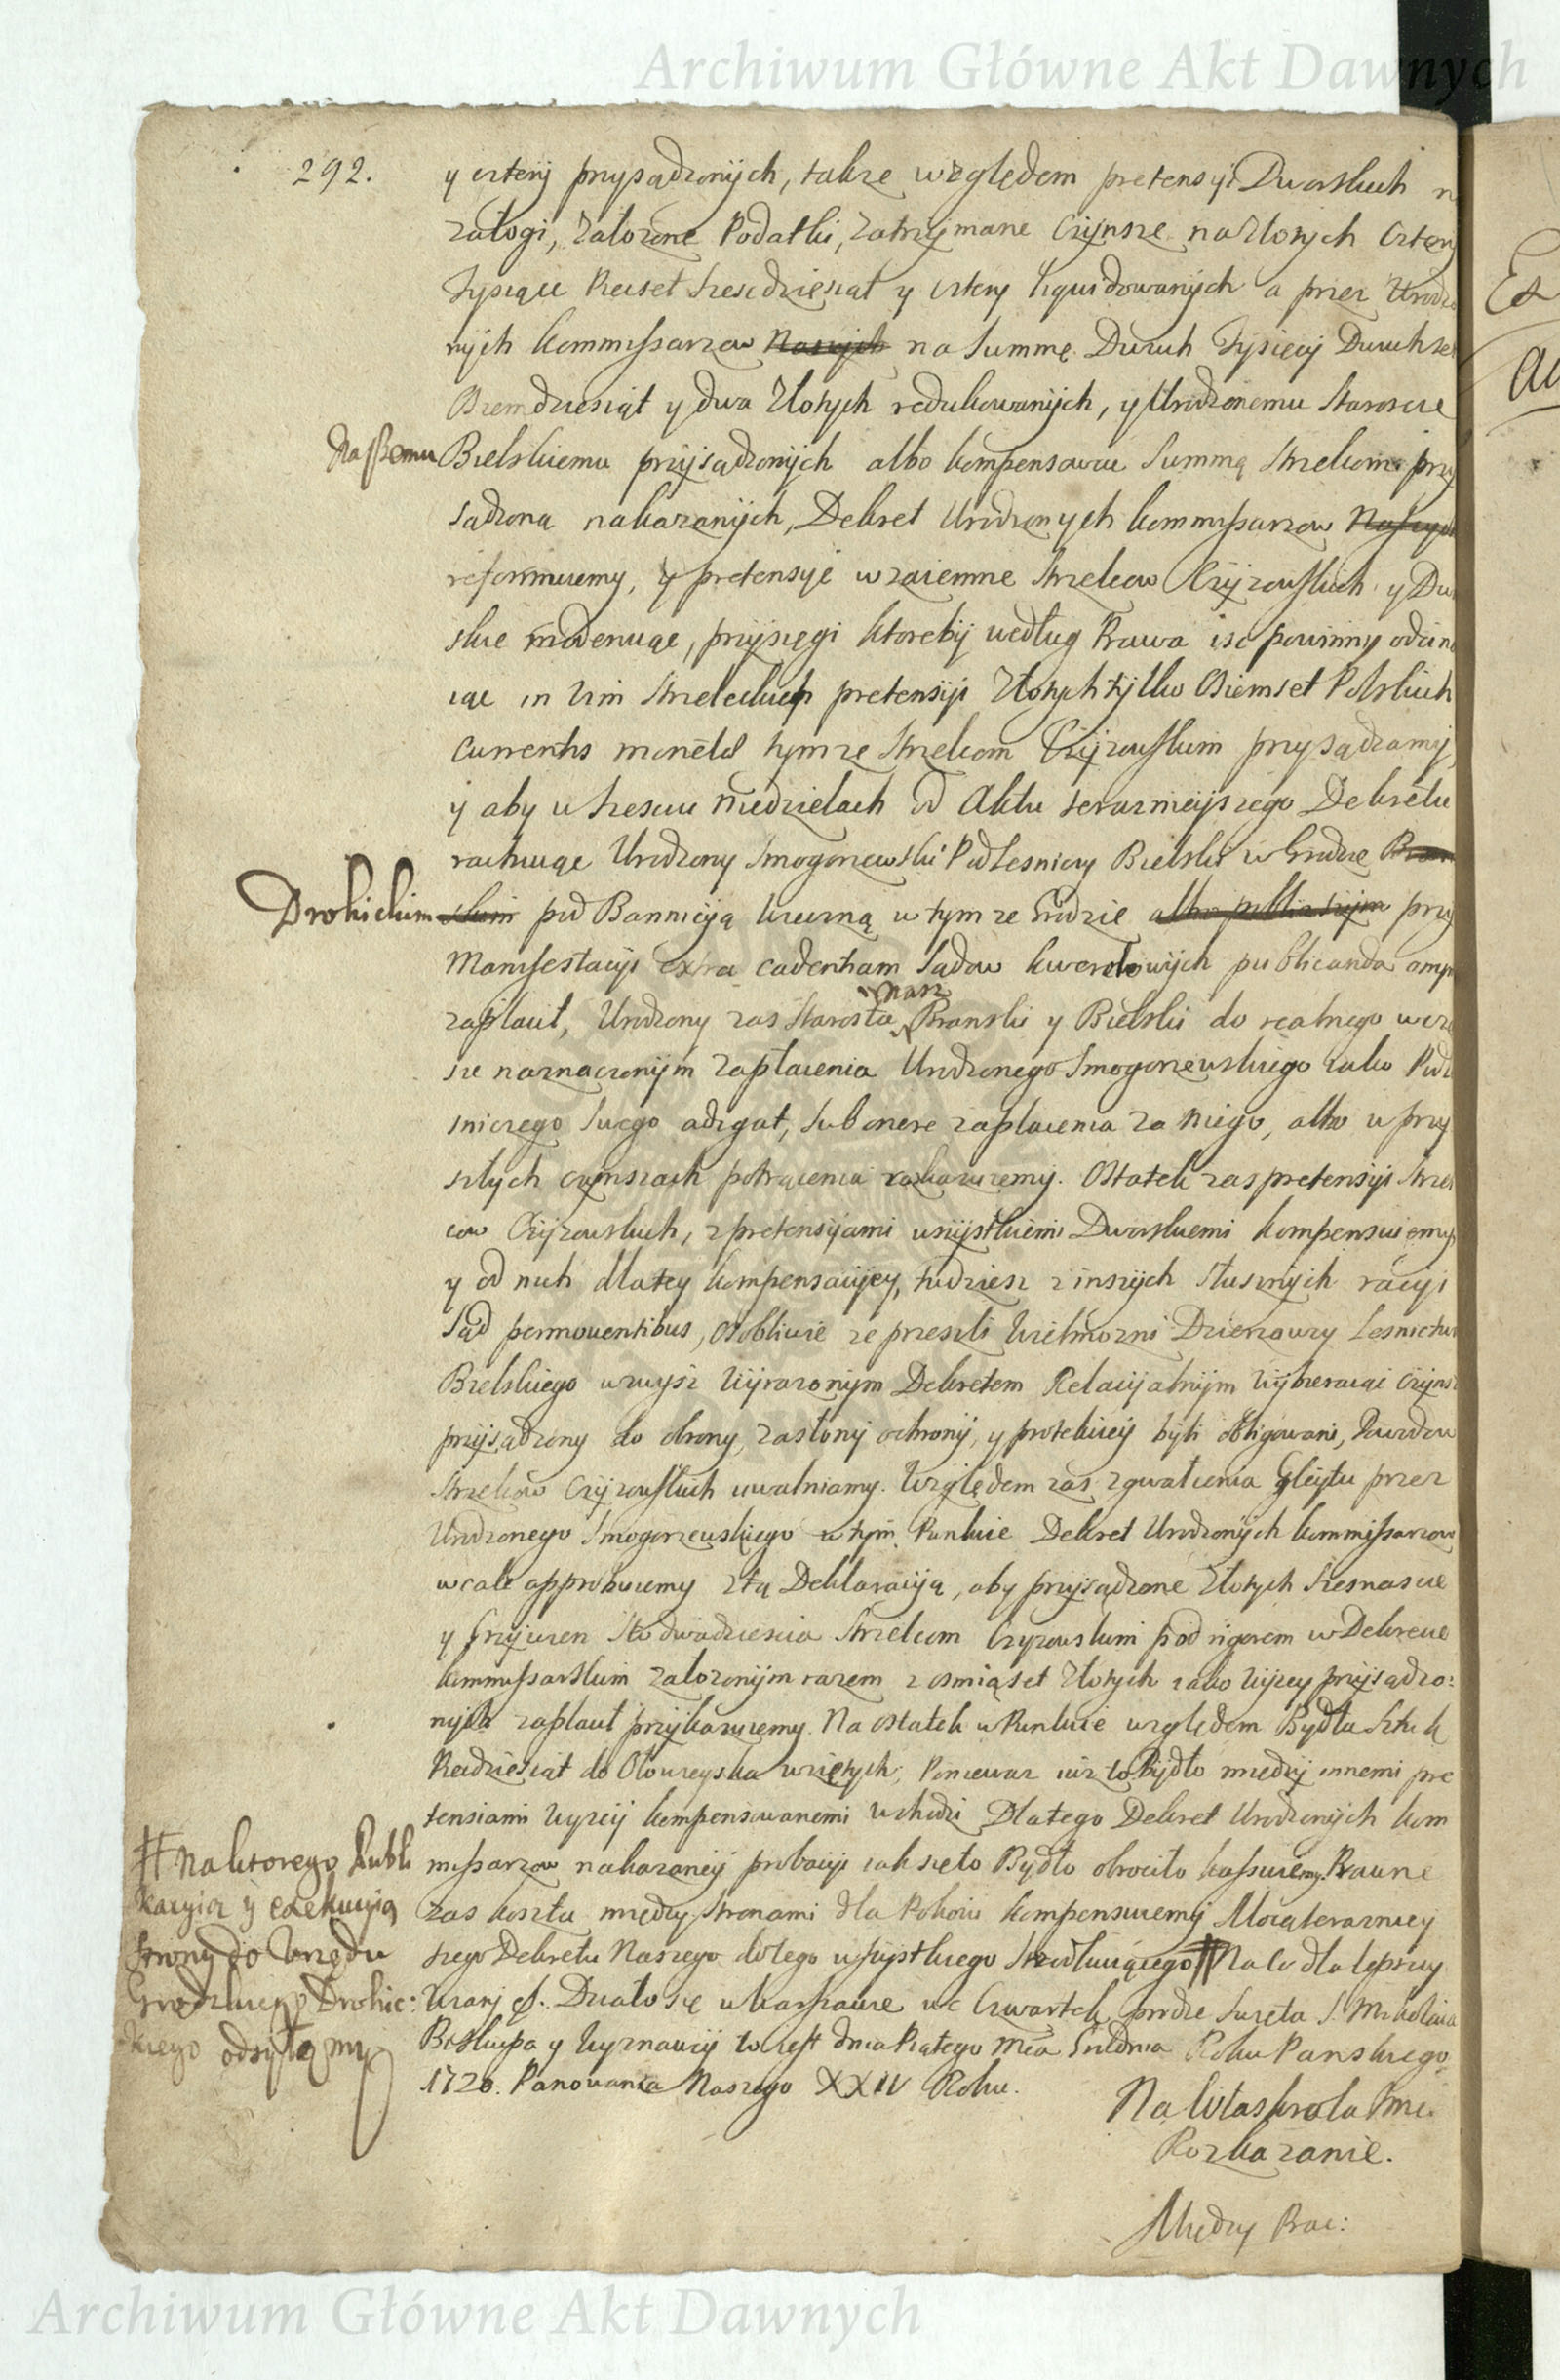 Archiwum Główne Akt Dawnych
292.
y cztery przysądzonych, takze względem pretensyi Dworskich
załogi, załozone Podatki, zatrzymane Czynsze na złotych Cztery
Tysiące Pięcset szescdziesiąt y cztery liquidowanych a przez Urodzo
nych kommissarzow Naszych na Summę Dwuch Tysięcy Dwuchset
Osiemdziesiąt y dwa złotych redukowanych, y Urodzonemu Staroscie
Naszemu Bielskiemu przysądzonych albo kompensowac Summą Strzelcom przy
sądzoną nakazanych, Dekret Urodzonych kommissarzow Naszych
reformuiemy, y pretensye wzaiemne Strzelcow Czyzowskich y Dwor
skie moderuiąc, przysięgi ktoreby według Prawa isc powinny odcina
iąc in vim Strzeleckich pretensyi złotych tylko Osiemset Polskich
Currentis monetæ tymze Strzelcom Czyzowskim przysądzamy
y aby w szesciu niedzielach od Aktu terazniejszego Dekretu
rachuiąc Urodzony Smogorzewski Podlesniczy Bielski w Grodzie
Drohickim skim pod Bannicyą wieczną w tymze Grodzie albo publicznym przy
Manifestacyi extra cadentiam Sądow kwerelowych publicanda
zapłacił, Urodzony zas Starosta nasz Branski y Bielski do realnego w cza
sie naznaczonym zapłacenia Urodzonego Smogorzewskiego iako Podle
sniczego swego adigat, sub onere zapłacenia za niego, albo w przy
szłych czynszach potrącenia rozkazuiemy. Ostatek zas pretensyi Strzel
cow Czyzowskich, z pretensyami wszystkiemi Dworskiemi kompensuiemy
y od nich dla tey kompensacyey, tudziesz z inszych słusznych racyi
Sąd permoventibus, osobliwie ze przeszli Wielmozni Dzierzawcy Lesnictwa
Bielskiego wzwysz wyrazonym Dekretem Relacyalnym wybieraiąc czynsz
przysądzony do obrony, zasłony ochrony, y protekcyi byli obligowani, Dworzan
Strzelcow Czyzowskich uwalniamy. Względem zas zgwałcenia Gleytu przez
Urodzonego Smogorzewskiego w tym Punkcie Dekret Urodzonych kommissarzow
wcale approbuiemy z tą Deklaracyą, aby przysądzone złotych szesnascie
y grzywien Sto dwadziescia Strzelcom Czyzowskim pod rigorem w Dekrecie
kommissarskim załozonym razem z osmiąset złotych iako wyzey przysądzo:
nych zapłacił przykazuiemy. Na ostatek w Punkcie względem Bydła sztuk
Pięcdziesiąt do Ołowzyska wziętych, Poniewaz iuz to Bydło między innemi pre
tensiami wyzey kompensowanemi wchodzi Dlatego Dekret Urodzonych kom
missarzow nakazaney probacyi iak się to Bydło obrociło kassuiemy. Prawne
zas koszta między stronami dla Pokoiu kompensuiemy Mocą terazniey
szego Dekretu Naszego do tego wszystkiego # Na co dla lepszey
Wiary etc. Działo się w Warszawie we Czwartek przede Swięta S. Mikołaia
Biskupa y Wyznawcy to iest dnia Piątego Mca Grudnia Roku Panskiego
1720. Panowania Naszego XXIV Roku.
# Na ktorego Publi
kacyią y exekucyią
strony do Urzędu
Grodzkiego Drohic:
kiego odsyłamy
Na własne krola Jmci
Rozkazanie.
Między Prac:
Archiwum Główne Akt Dawnych